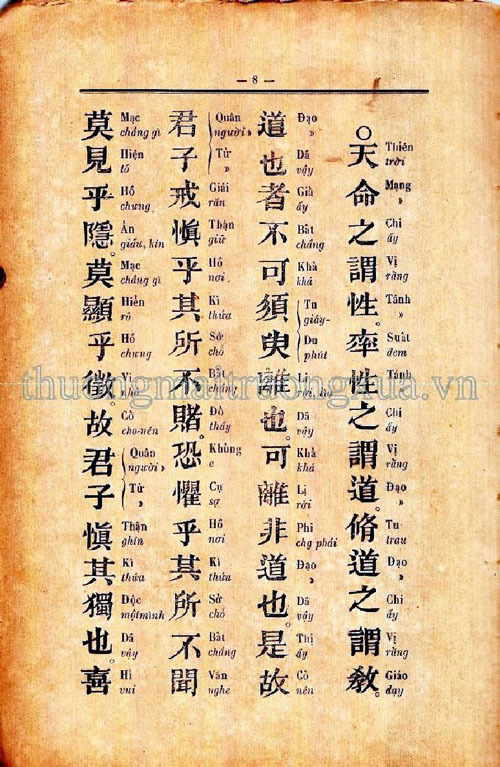 — 8 —
○天命之謂性。率性之謂道。脩道之謂敎。
Thiên
trời
Mạng
»
Chi
ấy
Vị
rằng
Tánh
»
Suất
đem
Tánh
»
Chi
ấy
Vị
rằng
Đạo
»
Tu
trau
Đạo
»
Chi
ấy
Vị
rằng
Giáo
dạy
道也者不可須臾離也。可離非道也。是故
Đạo
»
Dã
vậy
Giả
ấy
Bất
chẳng
Khả
khá
Tu
giây-
Du
phút
Li
Dã
vậy
Khả
khá
Li
rời
Phi
chg phải
Đạo
»
Dã
vậy
Thị
ấy
Cố
nên
君子戒慎乎其所不賭。恐懼乎其所不聞
Quân
người »
Tử »
Giái
răn
Thận
giữ
Hồ
nơi
Kì
thửa
Sở
chỗ
Bất
chẳng
Đổ
thấy
Khủng
e
Cụ
sợ
Hồ
nơi
Kì
thửa
Sở
chỗ
Bất
chẳng
Văn
nghe
莫見乎隱。莫顯乎微。故君子慎其獨也。喜
Mạc
chẳng gì
Hiện
tỏ
Hồ
chưng
Ẩn
giấu, kín
Mạc
chẳng gì
Hiển
rõ
Hồ
chưng
Vi
nhỏ
Cố
cho-nên
Quân
người »
Tử »
Thận
ghín
Kì
thửa
Độc
một mình
Dã
vậy
Hỉ
vui
thuongmaitruongxua.vn